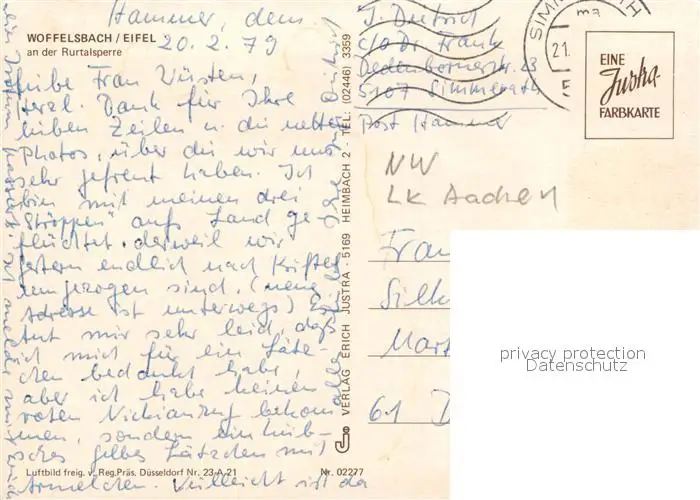 Hammer, dem
WOFFELSBACH / EIFEL
an der Rurtalsperre
20. 2. 79
Liebe Frau Wüsten,
Herzl. Dank für Ihre
lieben Zeilen u. die netten
Photos, über die wir uns
sehr gefreut haben. Ich
bin mit meinen drei
"Ströppen" aufs Land ge-
flüchtet, derweil wir
gestern endlich nach
umgezogen sind. (neue
Adresse ist unterwegs) Es
tut mir sehr leid, dass
ich mich für ein Lätz-
chen bedankt habe,
aber ich habe keinen
roten Nickianzug bekom
men, sondern ein hüb-
sches gelbes Lätzchen mit
Ärmelchen. Vielleicht ist da
Luftbild freig. v. Reg.Präs. Düsseldorf Nr. 23-A-21
Nr. 02277
VERLAG ERICH JUSTRA - 5169 HEIMBACH 2 - TEL: (02446) 3359
c/o Dr. Frank
5107 Simmerath
Post Hammer
SIMM TH
21.
EINE
Justra
FARBKARTE
NW
LK Aachen
Frau
Silk
Mart
61 D
privacy protection
Datenschutz